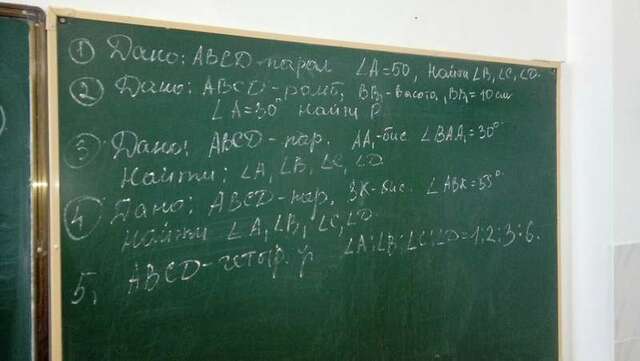 ① Дано: ABCD-парал ∠A=50, найти ∠B, ∠C, ∠D.
② Дано: ABCD-ромб, BB₁-высота, BB₁=10см
∠A=30° найти P
③ Дано: ABCD-пар. AA₁-бис ∠BAA₁=30°
Найти: ∠A, ∠B, ∠C, ∠D.
④ Дано: ABCD-пар, BK-бис. ∠ABK=55°
найти ∠A, ∠B, ∠C, ∠D.
5, ABCD-четыр. ∠A:∠B:∠C:∠D=1:2:3:6.